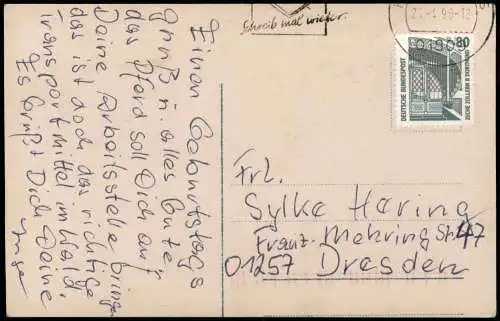 Schreib mal wieder.
80
DEUTSCHE BUNDESPOST
Einen Geburtstags
gruß u. alles Gute.
das Pferd soll Dich auf
Deine Arbeitsstelle bringen
das ist doch das richtige
Transportmittel im Wald.
Es grüßt Dich Deine
Frl.
Sylke Haring
Franz-Mehring Str. 47
01257 Dresden